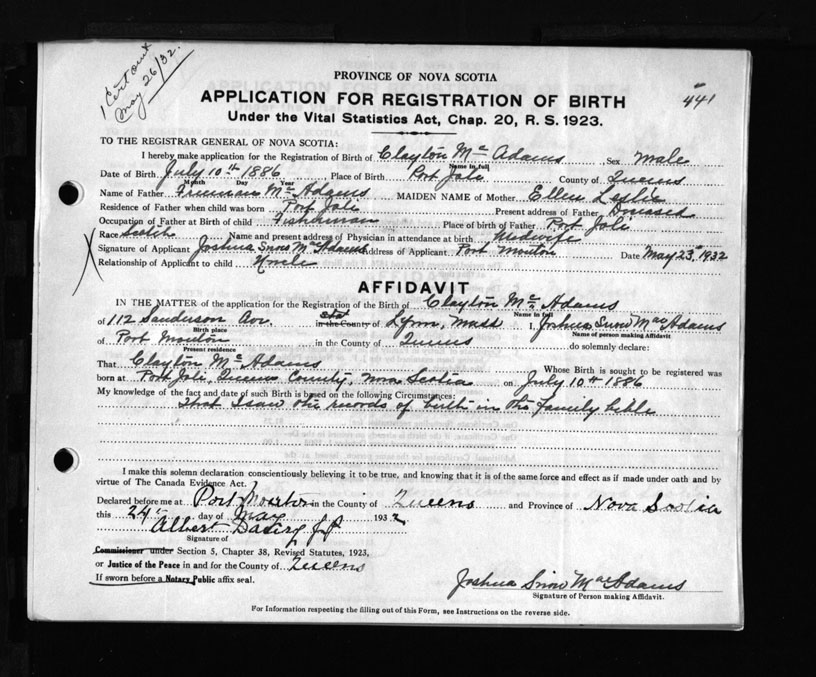 1 Cert out
May 26/32.
PROVINCE OF NOVA SCOTIA
APPLICATION FOR REGISTRATION OF BIRTH
441
Under the Vital Statistics Act, Chap. 20, R. S. 1923.
TO THE REGISTRAR GENERAL OF NOVA SCOTIA:
I hereby make application for the Registration of Birth of Clayton Mc Adams Sex male
Name in full
Date of Birth July 10th 1886 Place of Birth Port Joli County of Queens
Month Day Year
Name of Father Freeman Mc Adams MAIDEN NAME of Mother Ellen Leslie
Residence of Father when child was born Port Joli Present address of Father Deceased
Occupation of Father at Birth of child Fisherman Place of birth of Father Port Joli
Race Scotch Name and present address of Physician in attendance at birth Midwife
Signature of Applicant Joshua Snow MacAdams Address of Applicant Port Mouton Date May 23rd 1932
Relationship of Applicant to child Uncle
AFFIDAVIT
IN THE MATTER of the application for the Registration of the Birth of Clayton Mc Adams
Name in full
of 112 Sanderson Ave. in the County of Lynn, Mass I, Joshua Snow MacAdams
Birth place Name of person making Affidavit
of Port Mouton in the County of Queens do solemnly declare:
Present residence
That Clayton Mc Adams Whose Birth is sought to be registered was
born at Port Joli, Queens County, Nova Scotia on July 10th 1886
My knowledge of the fact and date of such Birth is based on the following Circumstances:
That I saw the records of birth in the Family bible
I make this solemn declaration conscientiously believing it to be true, and knowing that it is of the same force and effect as if made under oath and by
virtue of The Canada Evidence Act.
Declared before me at Port Mouton in the County of Queens and Province of Nova Scotia
this 24th day of May 1932
Albert J.P.
Signature of
Commissioner under Section 5, Chapter 38, Revised Statutes, 1923,
or Justice of the Peace in and for the County of Queens
If sworn before a Notary Public affix seal.
Joshua Snow MacAdams
Signature of Person making Affidavit.
For Information respecting the filling out of this Form, see Instructions on the reverse side.